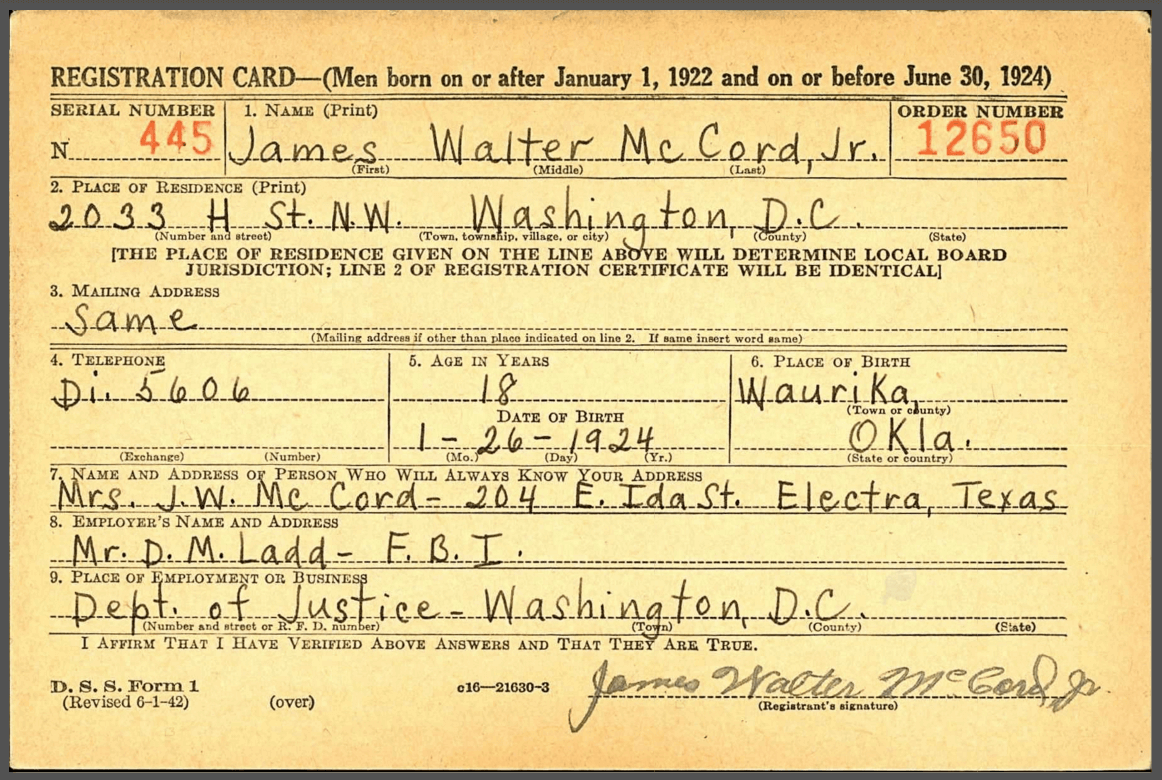 REGISTRATION CARD—(Men born on or after January 1, 1922 and on or before June 30, 1924)
SERIAL NUMBER 1. NAME (Print) ORDER NUMBER
N 445 James Walter McCord, Jr. 12650
(First) (Middle) (Last)
2. PLACE OF RESIDENCE (Print)
2033 H St. N.W. Washington, D.C.
(Number and street) (Town, township, village, or city) (County) (State)
[THE PLACE OF RESIDENCE GIVEN ON THE LINE ABOVE WILL DETERMINE LOCAL BOARD
JURISDICTION; LINE 2 OF REGISTRATION CERTIFICATE WILL BE IDENTICAL]
3. MAILING ADDRESS
Same
(Mailing address if other than place indicated on line 2. If same insert word same)
4. TELEPHONE 5. AGE IN YEARS 6. PLACE OF BIRTH
Di. 5606 18 Waurika,
DATE OF BIRTH (Town or county)
1-26-1924 Okla.
(Exchange) (Number) (Mo.) (Day) (Yr.) (State or country)
7. NAME AND ADDRESS OF PERSON WHO WILL ALWAYS KNOW YOUR ADDRESS
Mrs. J.W. McCord- 204 E. Ida St. Electra, Texas
8. EMPLOYER'S NAME AND ADDRESS
Mr. D. M. Ladd- F.B.I.
9. PLACE OF EMPLOYMENT OR BUSINESS
Dept. of Justice- Washington, D.C.
(Number and street or R. F. D. number) (Town) (County) (State)
I AFFIRM THAT I HAVE VERIFIED ABOVE ANSWERS AND THAT THEY ARE TRUE.
D. S. S. Form 1 c16—21630-3 James Walter McCord, Jr.
(Revised 6-1-42) (over) (Registrant's signature)